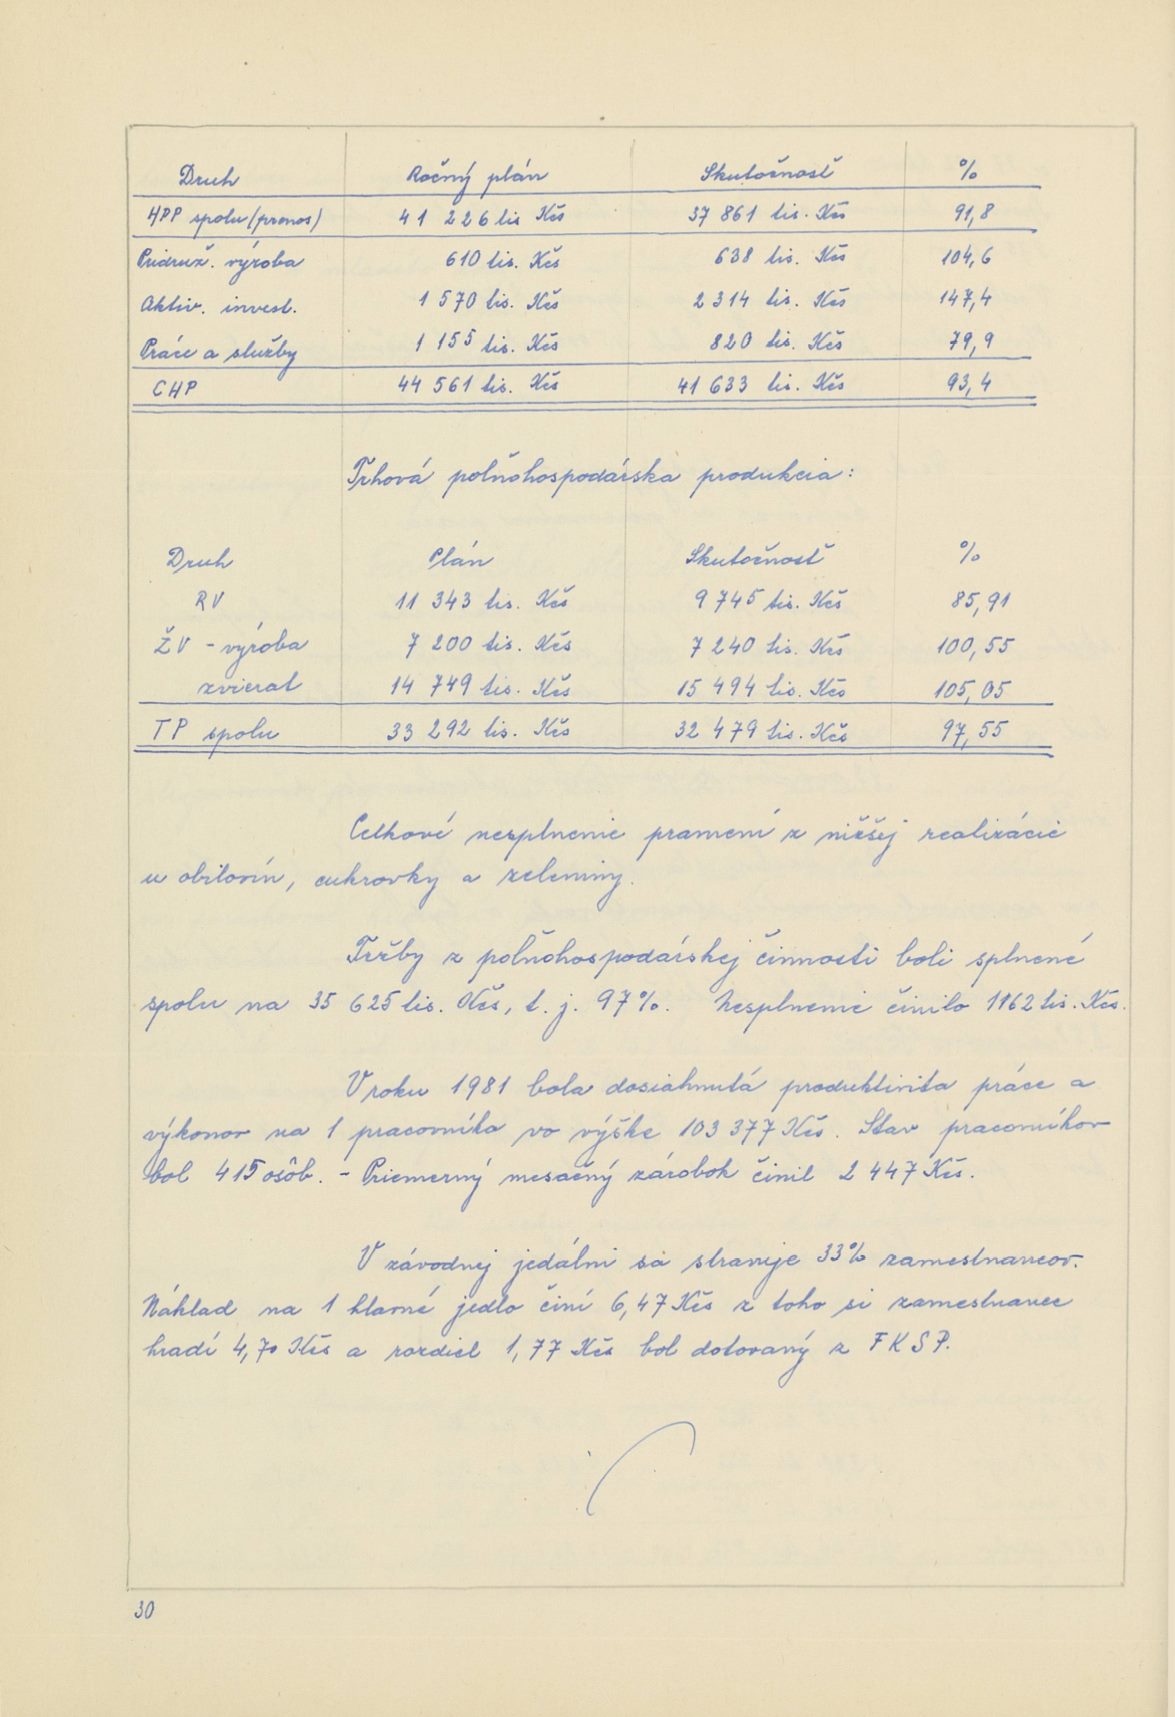 Druh Ročný plán Skutočnosť %
HPP spolu (prenos) 41 226 tis Kčs 37 861 tis. Kčs 91,8
Pridruž. výroba 610 tis. Kčs 638 tis. Kčs 104,6
Aktiv. invest. 1 570 tis. Kčs 2 314 tis. Kčs 147,4
Práce a služby 1 155 tis. Kčs 820 tis. Kčs 79,9
CHP 44 561 tis. Kčs 41 633 tis. Kčs 93,4
Tŕhová poľnohospodárska produkcia:
Druh Plán Skutočnosť %
RV 11 343 tis. Kčs 9 745 tis. Kčs 85,91
ŽV - výroba 7 200 tis. Kčs 7 240 tis. Kčs 100,55
zvierat 14 749 tis. Kčs 15 494 tis. Kčs 105,05
TP spolu 33 292 tis. Kčs 32 479 tis. Kčs 97,55
Celkové nesplnenie pramení z nižšej realizácie
u obilovín, cukrovky a zeleniny.
Tržby z poľnohospodárskej činnosti boli splnené
spolu na 35 625 tis. Kčs, t. j. 97%. Nesplnenie činilo 1162 tis. Kčs.
V roku 1981 bola dosiahnutá produktivita práce a
výkonov na 1 pracovníka vo výške 103 377 Kčs. Stav pracovníkov
bol 415 osôb. - Priemerný mesačný zárobok činil 2 447 Kčs.
V závodnej jedálni sa stravuje 33% zamestnancov.
Náklad na 1 hlavné jedlo činí 6,47 Kčs z toho si zamestnanec
hradí 4,70 Kčs a rozdiel 1,77 Kčs bol dotovaný z FKSP.
30